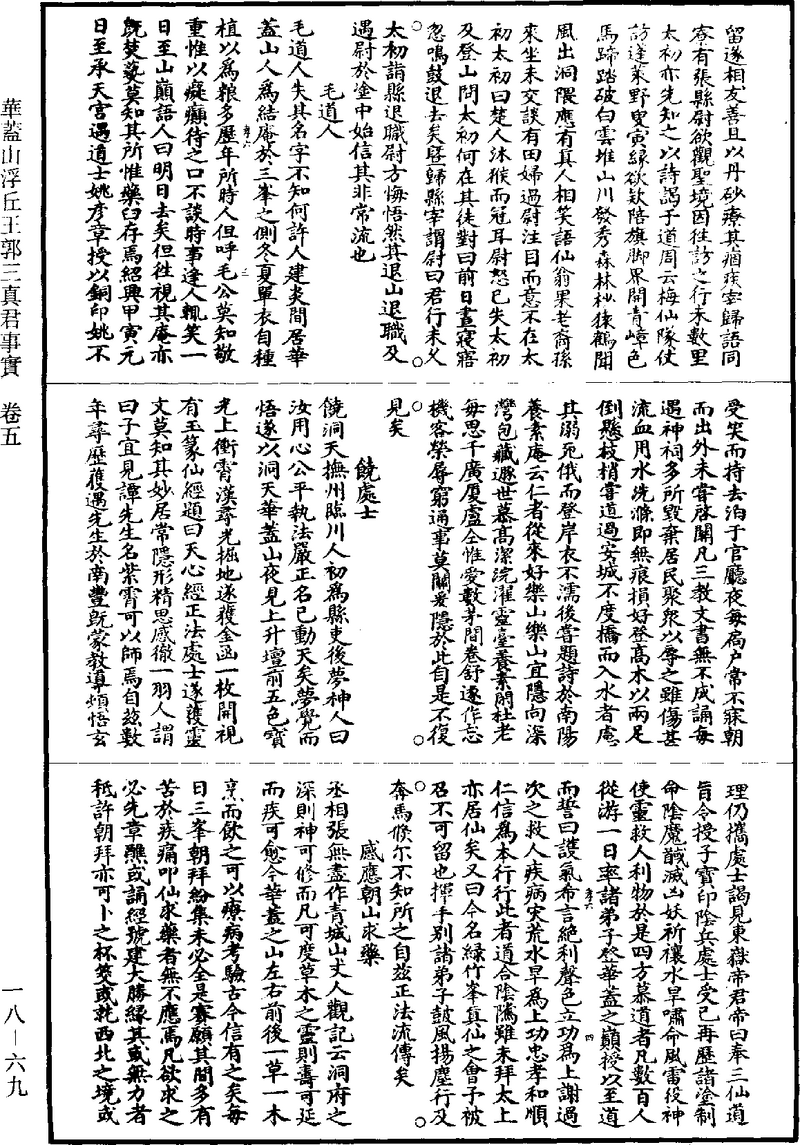 華蓋山浮丘王郭三真君事實　卷五
一八－六九
留遂相友善且以丹砂療其痼疾宰歸語同
寮有張縣尉欲觀聖境因徃訪之行未數里
太初亦先知之以詩謁子道周云梅仙隊仗
訪蓬萊野叟寅緣欲欵陪旗脚界開青嶂色
馬蹄踏破白雲堆山川發秀森林杪猿鶴聞
風出洞隈應有真人相笑語仙翁果老裔孫
來坐未交談有田婦過尉注目而意不在太
初太初曰楚人沐猴而冠耳尉怒已失太初
及登山問太初何在其徒對曰前日晝寢寤
忽鳴鼓退去矣暨歸縣宰謂尉曰君行未乆
太初詣縣退職尉方悔悟然其退山退職及
遇尉於塗中始信其非常流也
毛道人
毛道人失其名字不知何許人建炎間居華
蓋山人為結庵於三峯之側冬夏單衣自種
植以為粮多歷年所時人但呼毛公莫知敬
重惟以癡癲待之口不談時事逢人輒笑一
日至山巔語人曰明日去矣但徃視其庵亦
旣焚蓺莫知其所惟藥臼存焉紹興甲寅元
日至承天宮遇道士姚彥章授以銅印姚不
受笑而持去泊于官廳夜每扃户常不寐朝
而出外未甞啓關凡三教文書無不成誦每
遇神祠多所毀棄居民聚衆以辱之雖傷甚
流血用水洗滌即無痕損好登高木以兩足
倒懸枝梢甞道過安城不度橋而入水者慮
其溺死俄而登岸衣不濡後甞題詩於南陽
養素庵云仁者從來好樂山樂山宜隱向深
灣包藏遯世慕高潔浣濯靈臺養素閑杜老
每思千廣厦盧仝惟愛數茅間卷舒遂作忘
機客榮辱窮通事莫關爰隱於此自是不復
見矣
饒處士
饒洞天撫州臨川人初為縣吏後夢神人曰
汝用心公平執法嚴正名已動天矣夢覺而
悟遂以洞天華蓋山夜見上升壇前五色寶
光上衝霄漢尋光掘地遂獲金函一枚開視
有玉篆仙經題曰天心經正法處士遂獲靈
文莫知其妙居常隱形精思感徹一羽人謂
曰子宜見譚先生名紫霄可以師焉自兹數
年尋歷獲遇先生於南豐旣蒙教導煩悟玄
理仍攜處士謁見東嶽帝君帝曰奉三仙道
旨令授子寶印陰兵處士受已再歷諸塗制
命陰魔馘滅凶妖祈禳水旱嘯命風雷役神
使靈救人利物於是四方慕道者凡數百人
從游一日率諸弟子登華蓋之巔授以至道
而誓曰護氣希言絕利聲色立功為上謝過
次之救人疾病灾荒水旱為上功忠孝和順
仁信為本行行此者道合陰隲雖未拜太上
亦居仙矣又曰今名緑竹峯真仙之會予被
召不可留也揮手别諸弟子鼓風揚塵行及
奔馬倐尔不知所之自兹正法流傳矣
感應朝山求藥
丞相張無盡作青城山丈人觀記云洞府之
深則神可修而凡可度草木之靈則壽可延
而疾可愈今華蓋之山左右前後一草一木
烹而飲之可以療病考驗古今信有之矣每
日三峯朝拜紛集未必全是賽願其間多有
苦於疾痛叩仙求藥者無不應焉凡欲求之
必先章醮或誦經號建大勝緣其或無力者
秪許朝拜亦可卜之杯筊或乾西北之境或